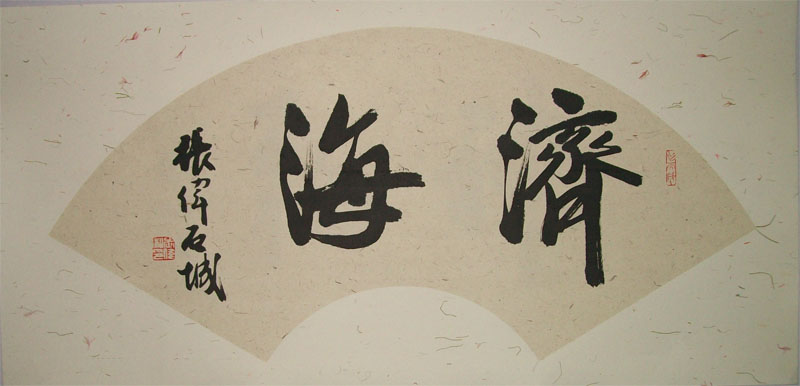 濟海
張偉石城